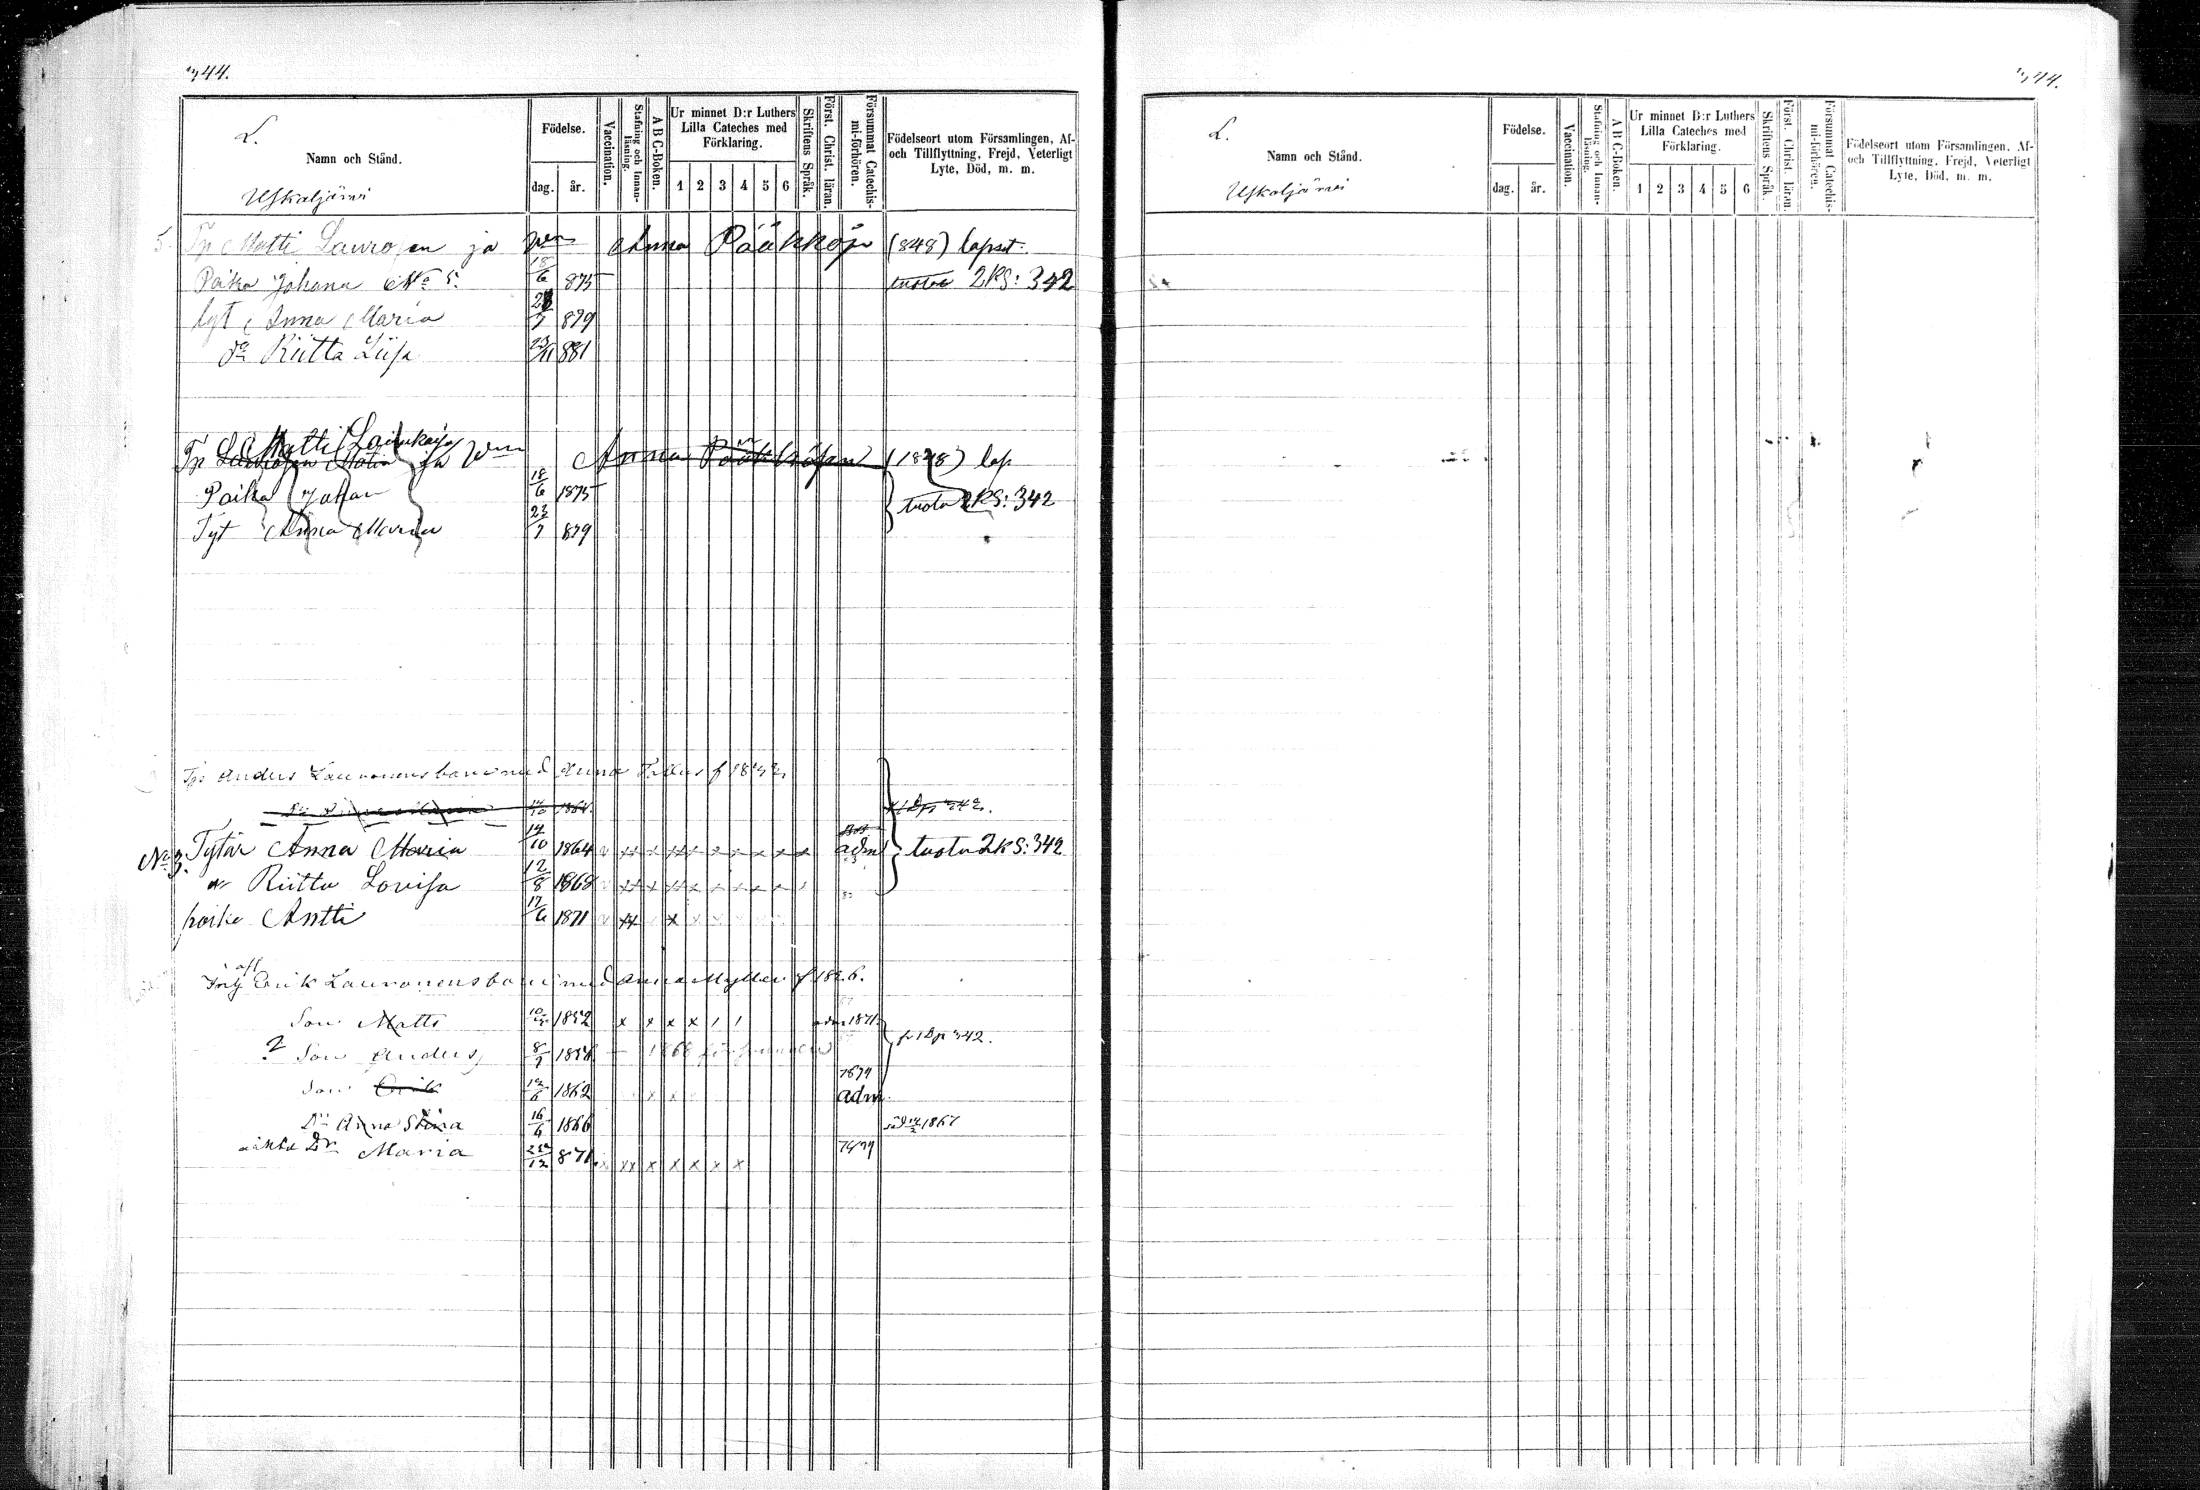 344.
L.
Namn och Stånd.
Uskaljärwi
Födelse.
dag. år.
Vaccination.
Stafning och Innan-läsning.
A B C-Boken.
Ur minnet D:r Luthers Lilla Cateches med Förklaring.
1 2 3 4 5 6
Skriftens Språk.
Först. Christ. läran.
Försummat Catechis-mi-förhören.
Födelseort utom Församlingen, Af- och Tillflyttning, Frejd, Veterligt Lyte, Död, m. m.
5. Tp Matti Laurosen ja wm Anna Pääkkösen (848) lapset
Poika Johana No 5. 18/6 875 tuotu 2KS: 342
tyt Anna Maria 23/7 879
do Riitta Liisa 23/11 881
Tp Matti ja wm Anna Pääkkösen (1848) lap
Poika Johan 18/6 1875 tuotu 2KS: 342
Tyt Anna Maria 23/7 879
Tp Anders Lauronens barn med Anna
14/10 1864.
No 3. Tytär Anna Maria 14/10 1864 v xx x xx x x x x x x adm tuotu 2KS: 342
Riitta Lovisa 12/8 1868 xx x xx x x x x x
poika Antti 17/6 1871 v xx x
Erik Lauronens barn med Anna Myller f 182.6.
Son Matts 1852 x x x x adm 1871. fr 1 Dp 342.
? Son Anders 8/7 1858 1868
Son Erik 1862 x x 1879 adm
Dr Anna Stina 16/4 1866 1867
Dr Maria 12 871 x xx x x x x x 7879
344.
L.
Namn och Stånd.
Uskaljärwi
Födelse.
dag. år.
Vaccination.
Stafning och Innan-läsning.
A B C-Boken.
Ur minnet D:r Luthers Lilla Cateches med Förklaring.
1 2 3 4 5 6
Skriftens Språk.
Först. Christ. läran.
Försummat Catechis-mi-förhören.
Födelseort utom Församlingen, Af- och Tillflyttning, Frejd, Veterligt Lyte, Död, m. m.